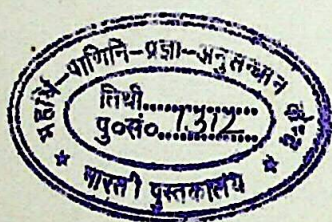 महर्षि-पाणिनि-प्रज्ञा-अनुसन्धान केन्द्र
तिथी..............
पु०सं०.1312..........
★ भारती पुस्तकालय ★